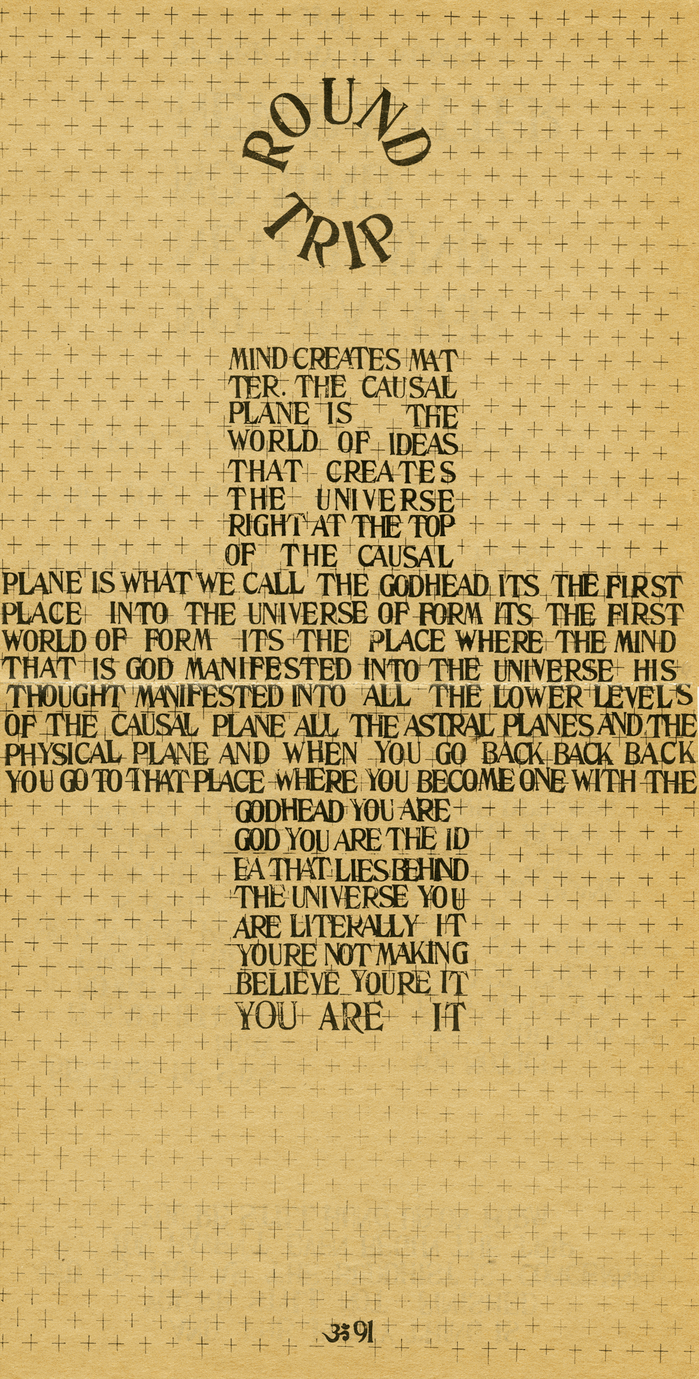 ROUND
TRIP
MIND CREATES MAT
TER. THE CAUSAL
PLANE IS THE
WORLD OF IDEAS
THAT CREATES
THE UNIVERSE
RIGHT AT THE TOP
OF THE CAUSAL
PLANE IS WHAT WE CALL THE GODHEAD ITS THE FIRST
PLACE INTO THE UNIVERSE OF FORM ITS THE FIRST
WORLD OF FORM ITS THE PLACE WHERE THE MIND
THAT IS GOD MANIFESTED INTO THE UNIVERSE HIS
THOUGHT MANIFESTED INTO ALL THE LOWER LEVELS
OF THE CAUSAL PLANE ALL THE ASTRAL PLANES AND THE
PHYSICAL PLANE AND WHEN YOU GO BACK BACK BACK
YOU GO TO THAT PLACE WHERE YOU BECOME ONE WITH THE
GODHEAD YOU ARE
GOD YOU ARE THE ID
EA THAT LIES BEHIND
THE UNIVERSE YOU
ARE LITERALLY IT
YOURE NOT MAKING
BELIEVE YOURE IT
YOU ARE IT
ॐ 91